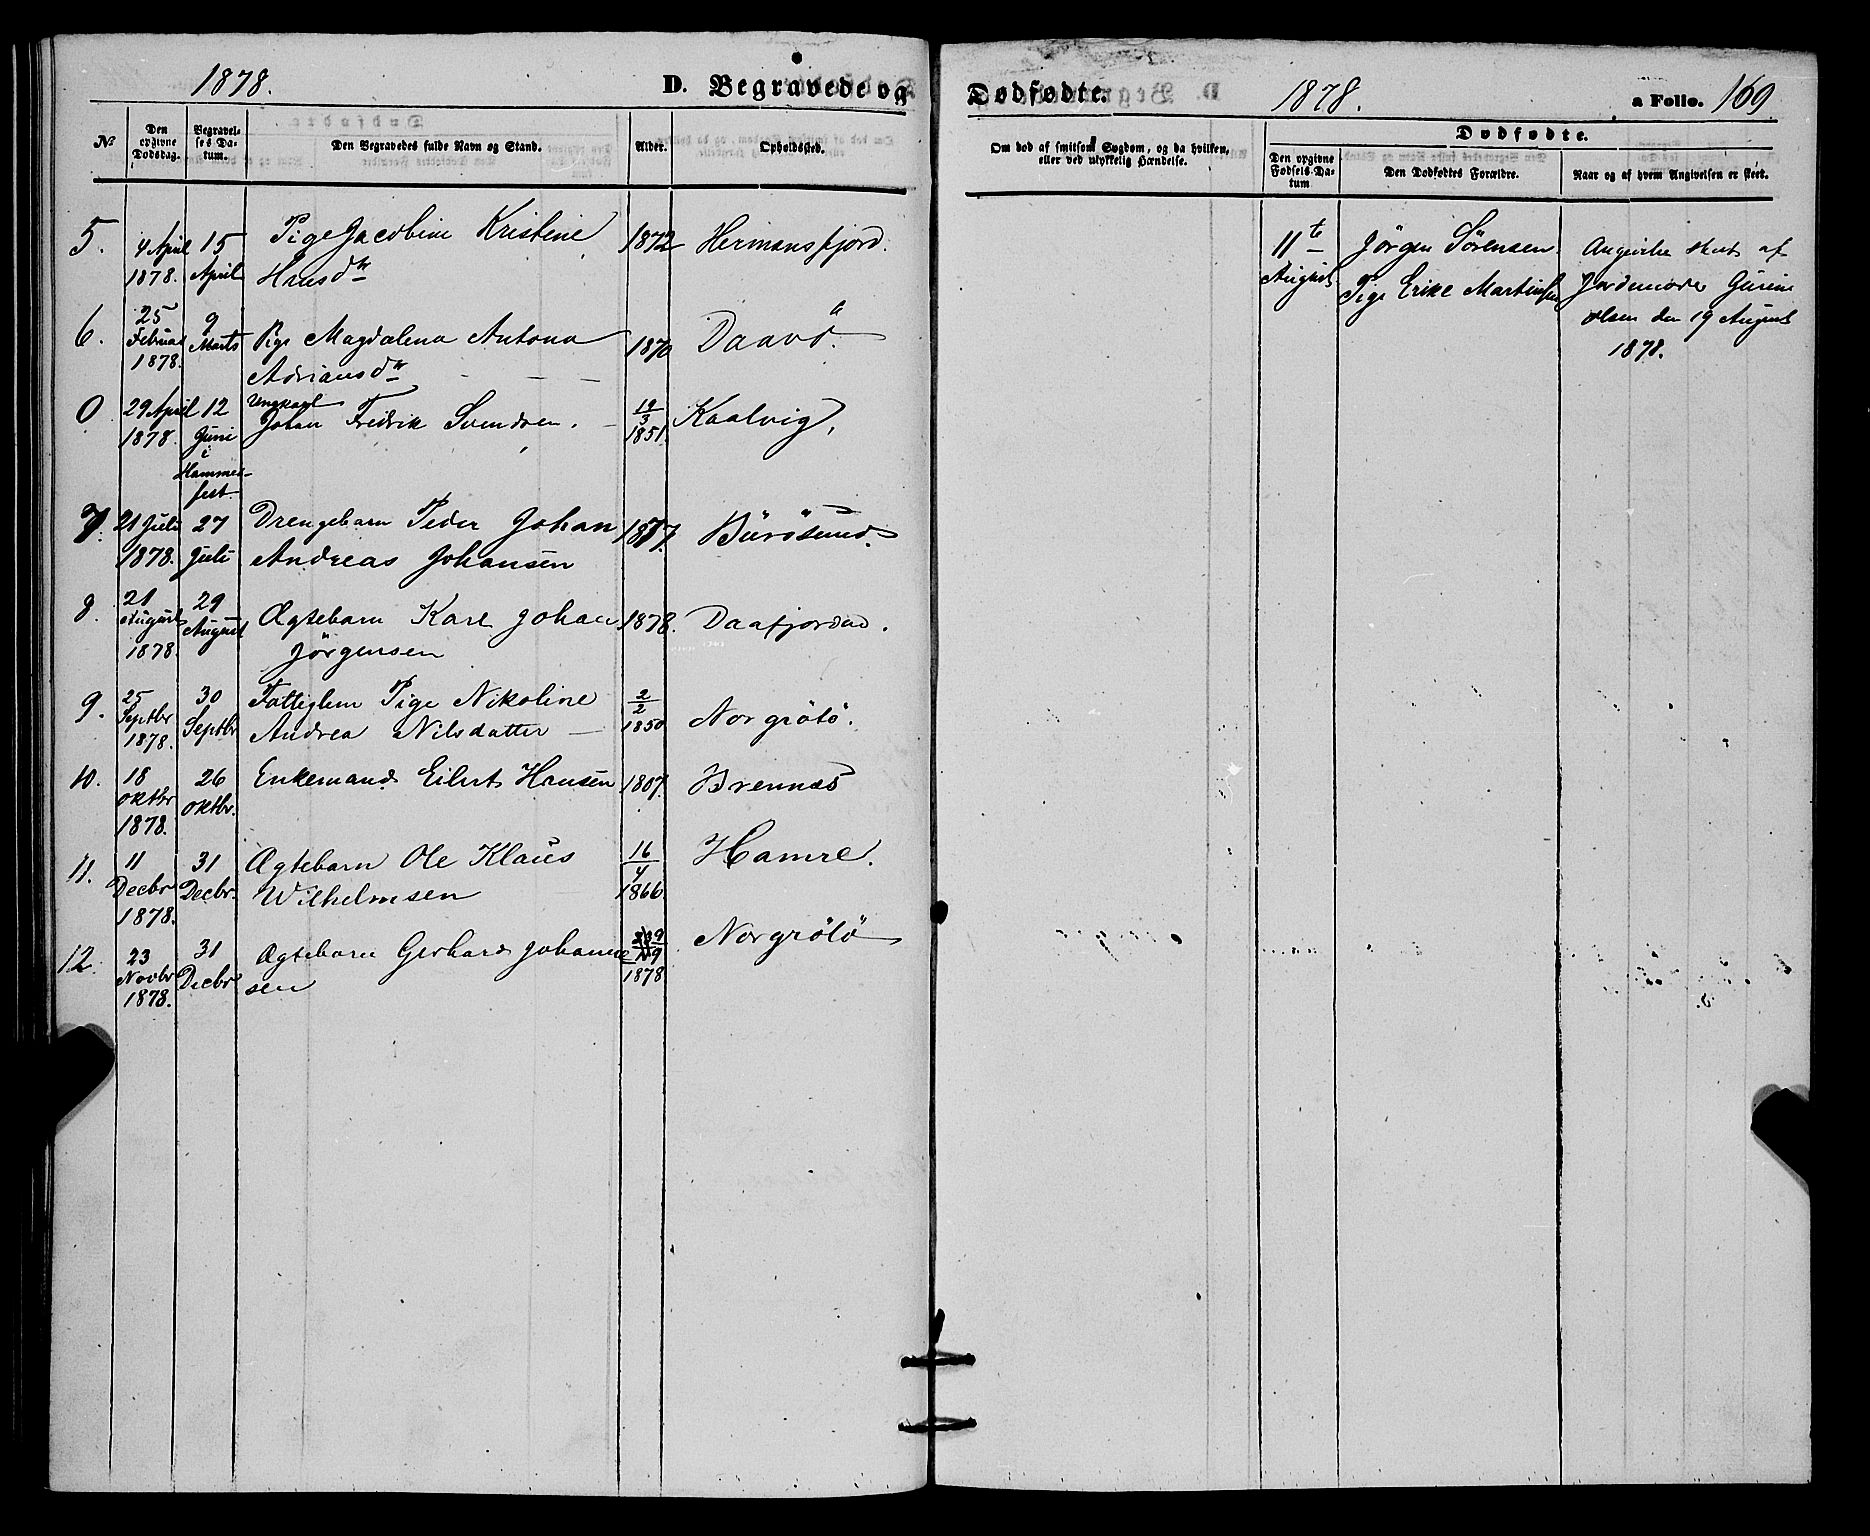 1878.
D. Begravede og Dødfødte.
1878.
a Folio. 169
№
Den opgivne Dødsdag.
Begravelses Datum.
Den Begravedes fulde Navn og Stand.
Alder.
Opholdssted.
Om død af smitsom Sygdom, og da hvilken, eller ved ulykkelig Hændelse.
Dødfødte.
Den opgivne Fødsels-Datum
Den Dødfødtes Forældre.
Naar og af hvem Angivelsen er skeet.
5. 4 April 15 Pige Jacobine Kristine 1872 Hermansfjord.
1878. April Hansdtr
6. 25 Februar 1878. 9 Marts Pige Magdalena Antona 1870 Daavö.
Adriansdtr
0 29 April 12 Ungkarl
Johan Fredrik Svendsen. 19/3 1851. Kaalvig,
1878. Juni i Hammerfest.
7. 21 Juli 27 Drengebarn Peder Johan 1877. Burösund.
1878. Juli Andreas Johansen
8. 21 August 1878. 29 August Ægtebarn Karl Johan 1878. Daafjorden.
Jörgensen
9. 25 Septbr 1878. 30 Septbr Fattiglem Pige Nikoline 2/2 1850 Norgrötö.
Andrea Nilsdatter
10. 18 oktbr 1878. 26 oktbr. Enkemand Eilert Hansen 1807. Brennæs
11. 11 Decbr 1878. 31 Decbr. Ægtebarn Ole Klaus 16/4 1866. Hamre.
Wilhelmsen
12. 23 Novbr 1878. 31 Decbr Ægtebarn Gerhard Johanne 9/9 1878 Norgrötö
sen
11te August
Jörgen Sörensen
Pige Erike Martinsen
Angivelse skeet af
Jordemoder Gurine
Olsen den 19 August
1878.